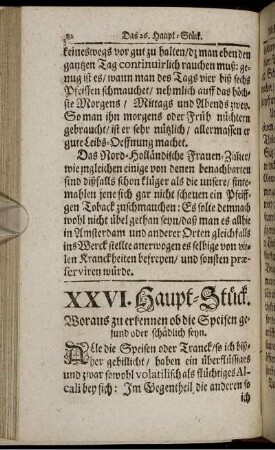 82 Das 26. Haupt-Stück.
keineswegs vor gut zu halten/dz man eben den
gantzen Tag continuirlich rauchen muß: ge-
nug ist es/ wann man des Tags vier biß sechs
Pfeiffen schmauchet/ nehmlich auff das höch-
ste Morgens/ Mittags und Abends zwey.
So man ihn morgens oder Früh nüchtern
gebraucht/ ist er sehr nützlich/ allermassen er
gute Leibs-Oeffnung machet.
Das Nord-Holländische Frauen-Zimer/
wie jngleichen einige von denen benachbarten
sind dißfalls schon klüger als die unsere/ sinte-
mahlen jene sich gar nicht scheuen ein Pfeiff-
gen Toback zuschmauchen: Es solte demnach
wohl nicht übel gethan seyn/daß man es allhie
in Amsterdam und anderer Orten gleichfalls
ins Werck stellte anerwogen es selbige von vie-
len Kranckheiten befreyen/ und sonsten præ-
serviren würde.
XXVI. Haupt-Stück.
Woraus zu erkennen ob die Speisen ge-
sund oder schädlich seyn.
Alle die Speisen oder Tranck/so ich biß-
her gebillicht/ haben ein überflüssiges
und zwar sowohl volatilisch als flüchtiges Al-
cali bey sich: Im Gegentheil die anderen so
ich